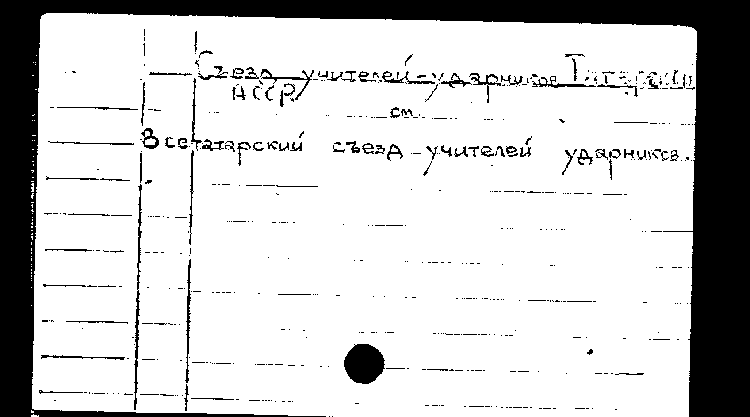 Съезд учителей-ударников Татарской
АССР.
см.
Всетатарский съезд учителей ударников.